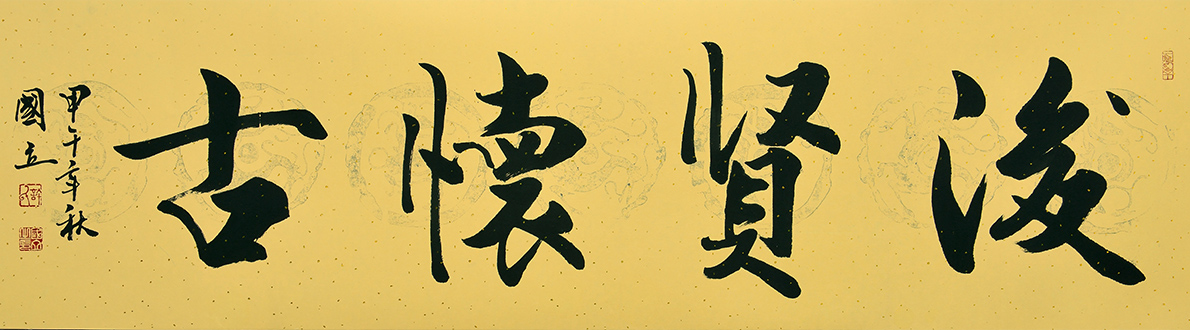 浚賢懷古
甲午年秋
國立